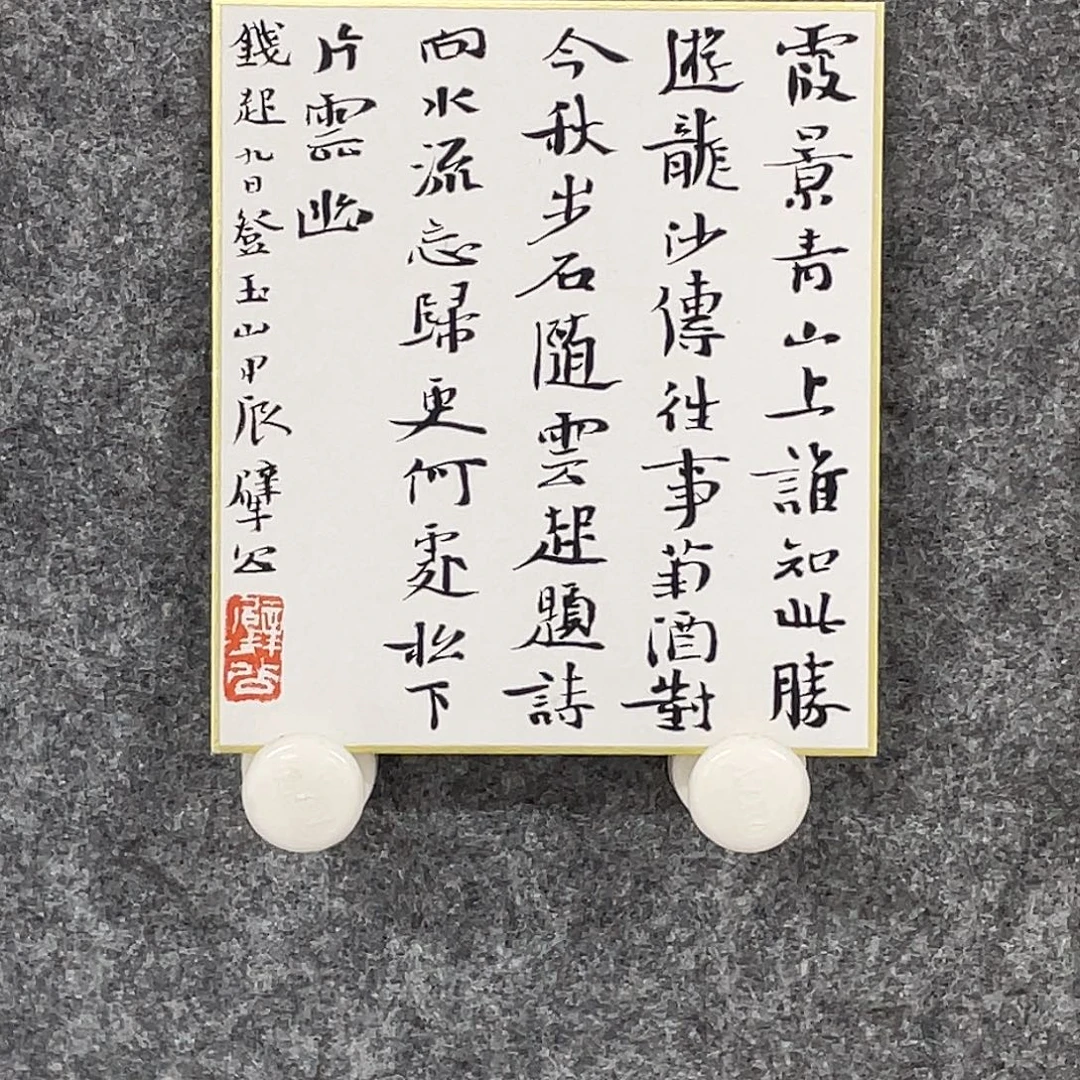 霞景青山上誰知此勝
遊龍沙傳往事菊酒對
今秋步石隨雲起題詩
向水流忘歸更何處松下
片雲幽
錢起九日登玉山甲辰擘公
擘公